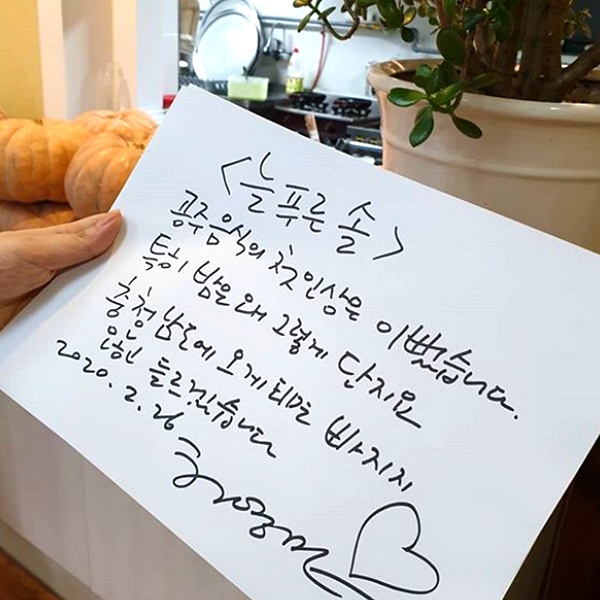 <늘 푸른 솔>
공주 음식의 첫 인상은 이뻤습니다.
특히 밤은 왜 그렇게 단지요
충청 남도에 오게 되면 빠지지
않고 들르겠습니다
2020. 2. 26